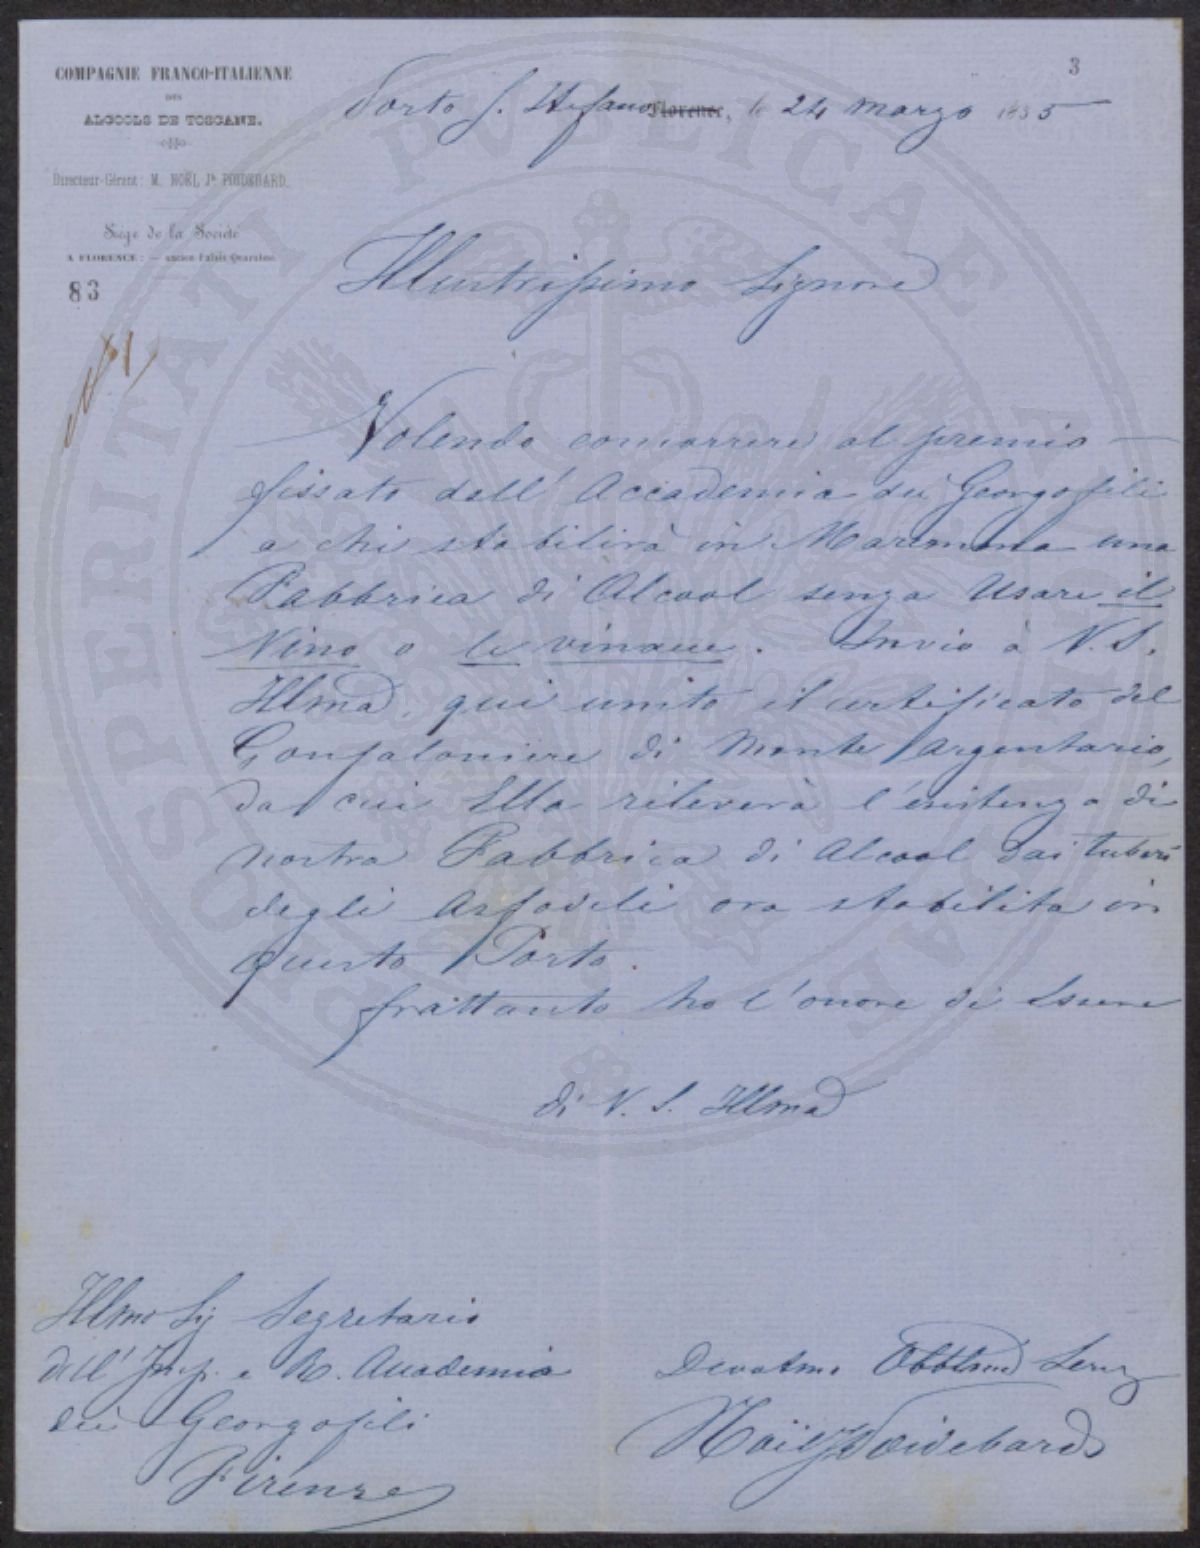 COMPAGNIE FRANCO-ITALIENNE
DES
ALCOOLS DE TOSCANE.
Directeur-Gérant: M. NOËL Jh POIDEBARD.
Siège de la Société
A FLORENCE: — ancien Palais Quaratesi
83
3
Porto S. Stefano Florence, le 24 Marzo 1855
Illustrissimo Signore
Volendo concorrere al premio
fissato dall' Accademia dei Georgofili
a chi stabilirà in Maremma una
Fabbrica di Alcool senza Usare il
Vino o le vinacce. Invio à V.S.
Illma, qui unito il certificato del
Gonfaloniere di Monte Argentario,
da cui Ella rileverà l'esistenza di
nostra Fabbrica di Alcool dai tuberi
degli Asfodeli ora stabilita in
questo Porto.
frattanto ho l'onore di Essere
di V. S. Illma
Illmo Sig Segretario
dell' Imp. e R. Accademia
dei Georgofili
Firenze
Devotmo Obbtmo Serv
Noël Jh Poidebard
PROSPERITATI PUBLICAE AUGENDAE